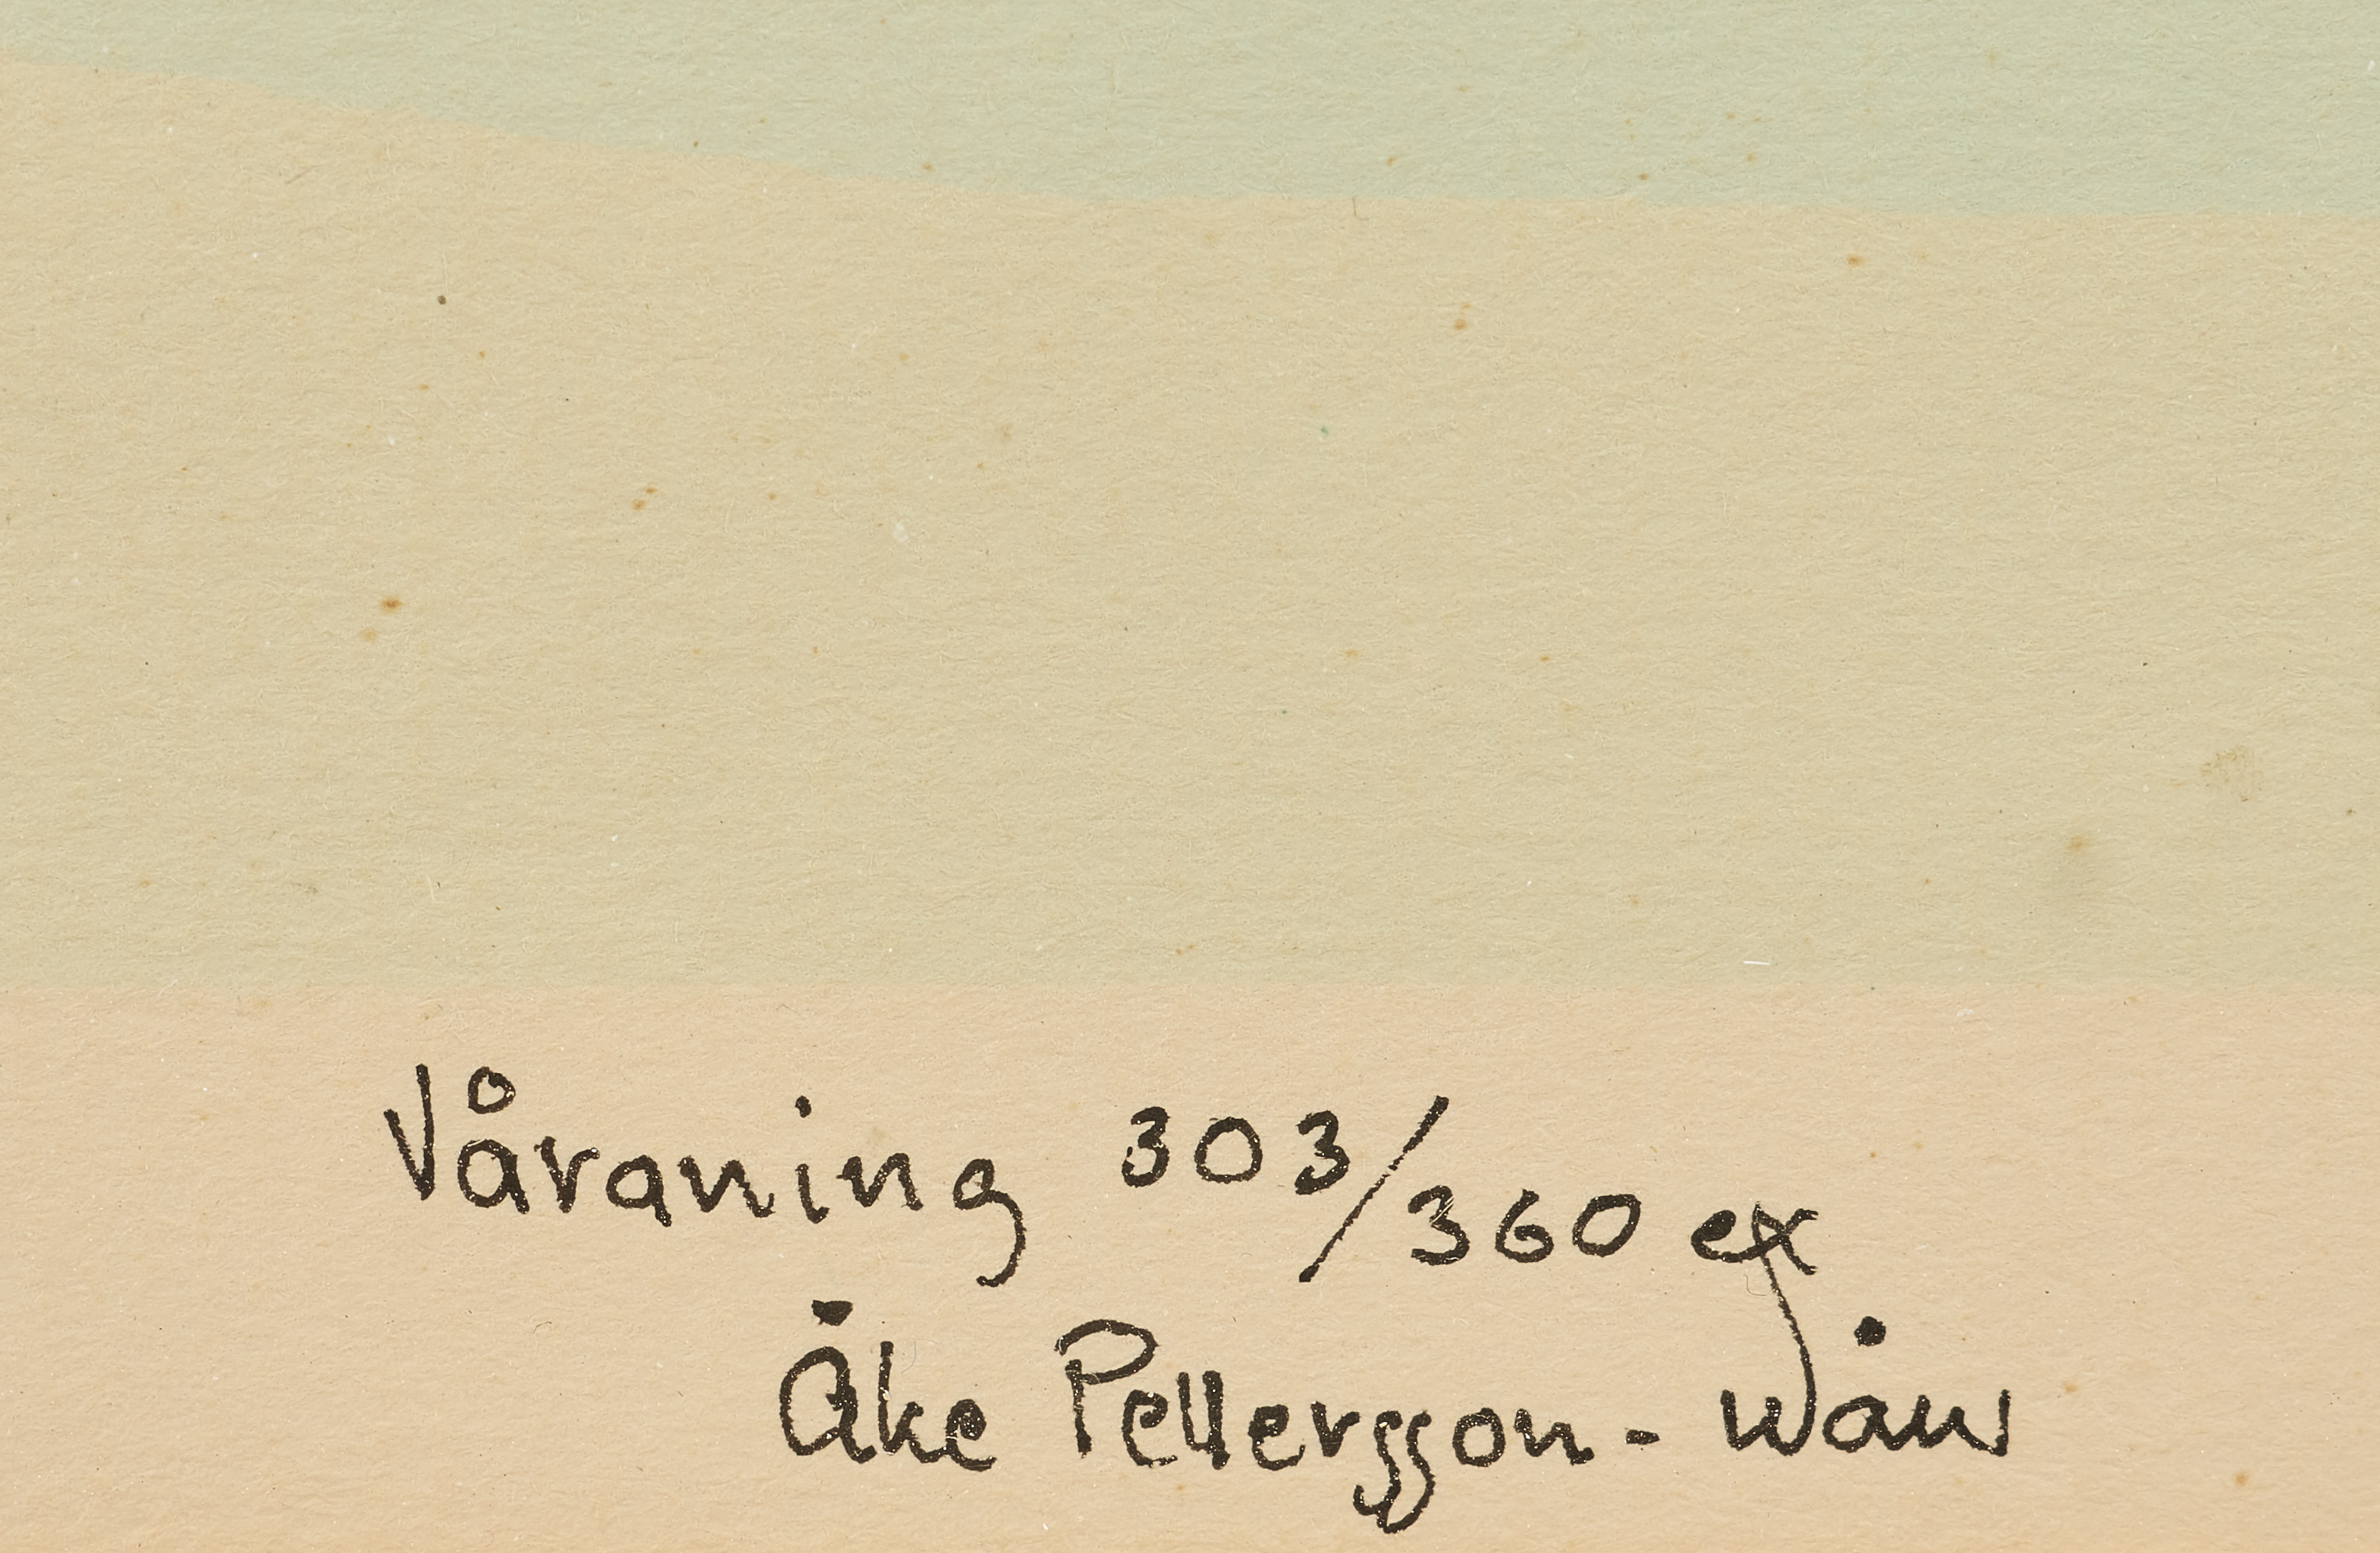 Våraning 303/360 ex
Åke Pettersson - Wåw